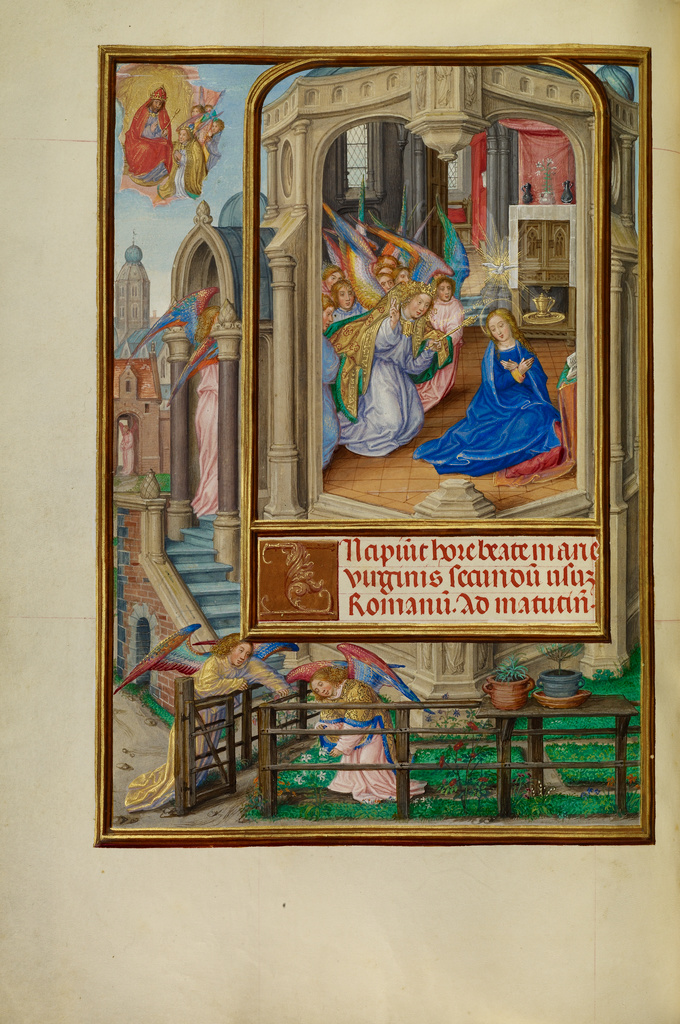 INcipiūt hore beate marie
virginis secundū usuʒ
Romanū. Ad matutin̄.